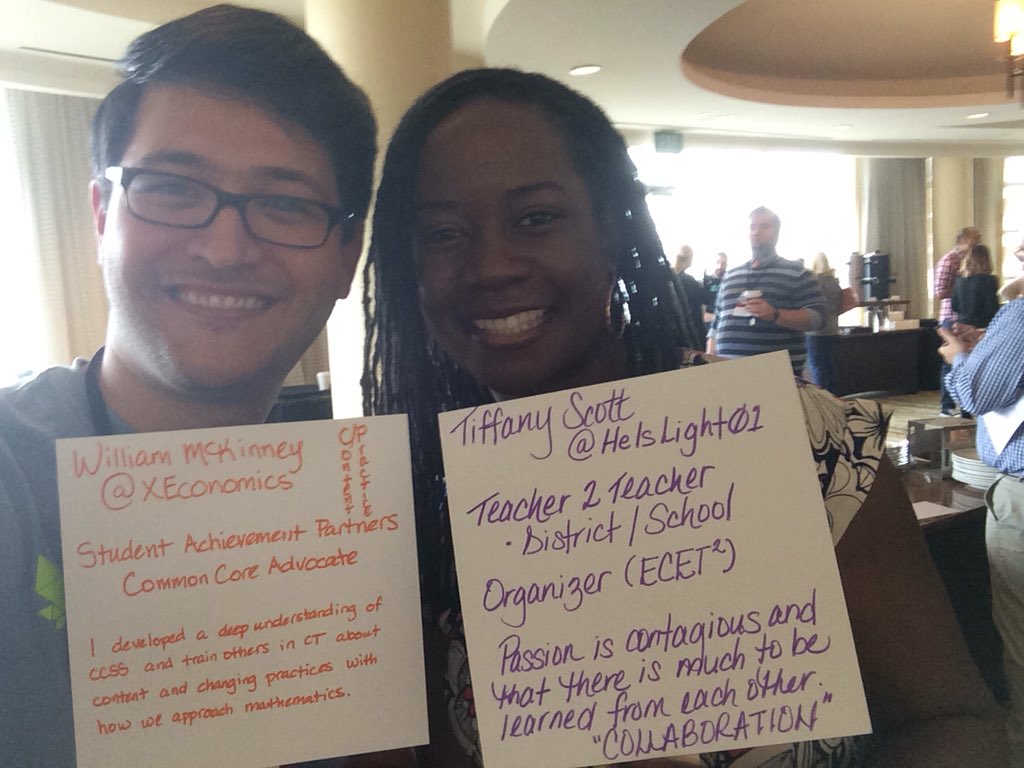 William McKinney
@XEconomics
Content/
Practice
Student Achievement Partners
Common Core Advocate
I developed a deep understanding of
CCSS and train others in CT about
content and changing practices with
how we approach mathematics.
Tiffany Scott
@HeIsLight01
Teacher 2 Teacher
· District / School
Organizer (ECET²)
Passion is contagious and
that there is much to be
learned from each other.
"COLLABORATION"